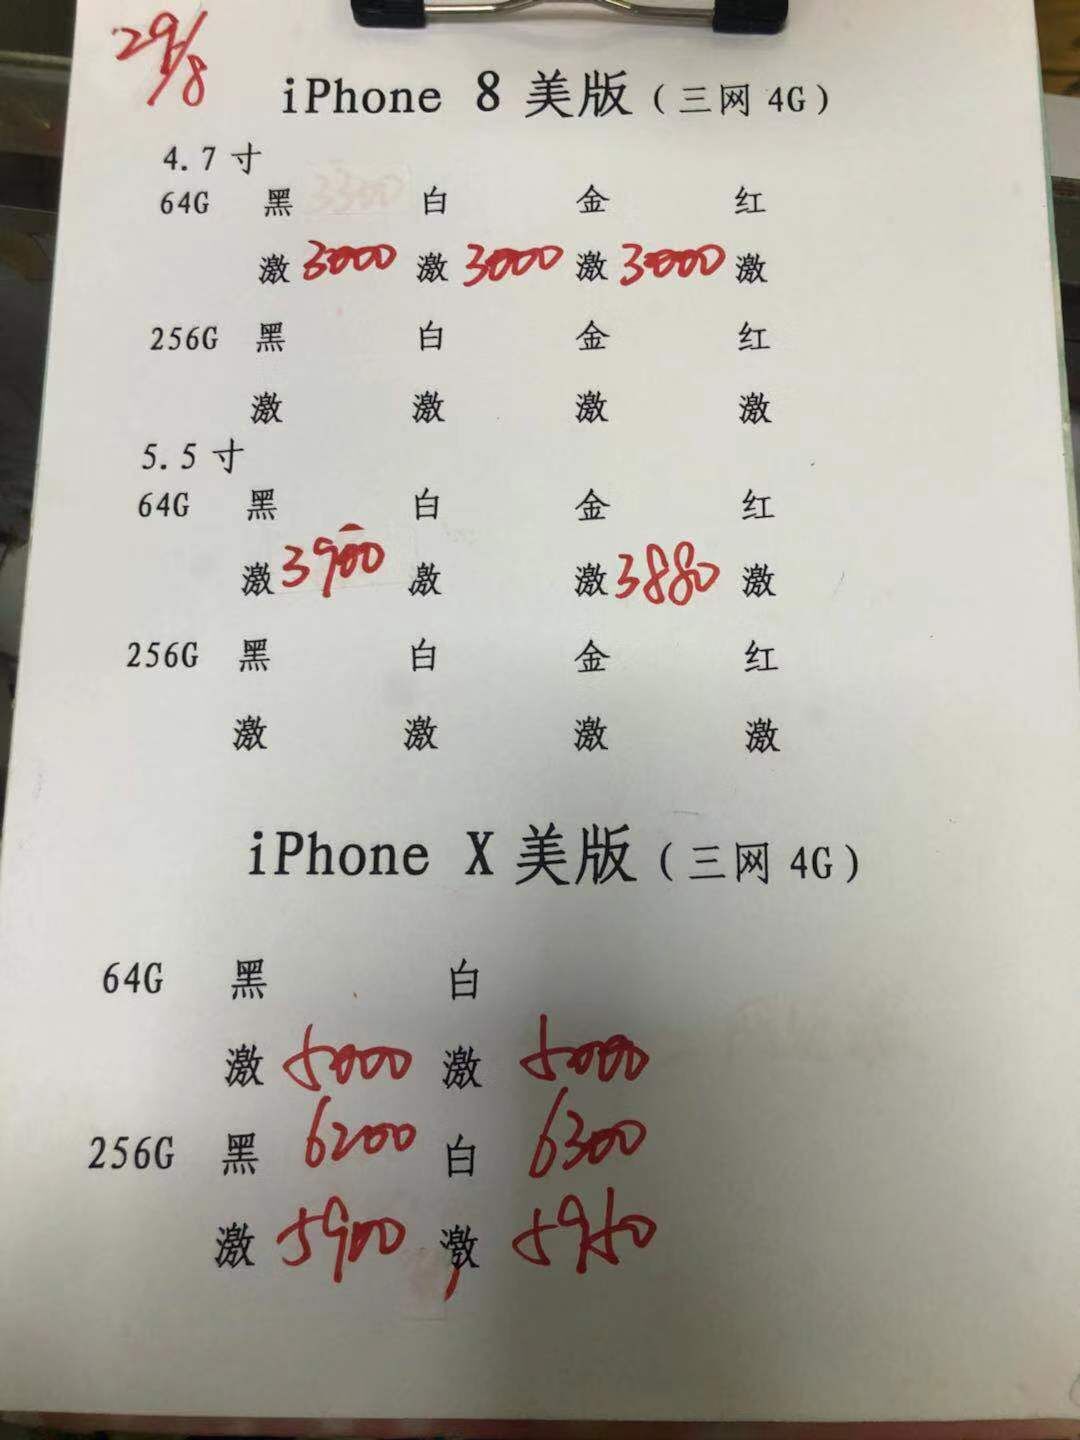 29/8
iPhone 8 美版（三网 4G）
4.7 寸
64G 黑 3300 白 金 红
激 3000 激 3000 激 3000 激
256G 黑 白 金 红
激 激 激 激
5.5 寸
64G 黑 白 金 红
激 3900 激 激 3880 激
256G 黑 白 金 红
激 激 激 激
iPhone X 美版（三网 4G）
64G 黑 白
激 5000 激 5000
256G 黑 6200 白 6300
激 5900 激 5950